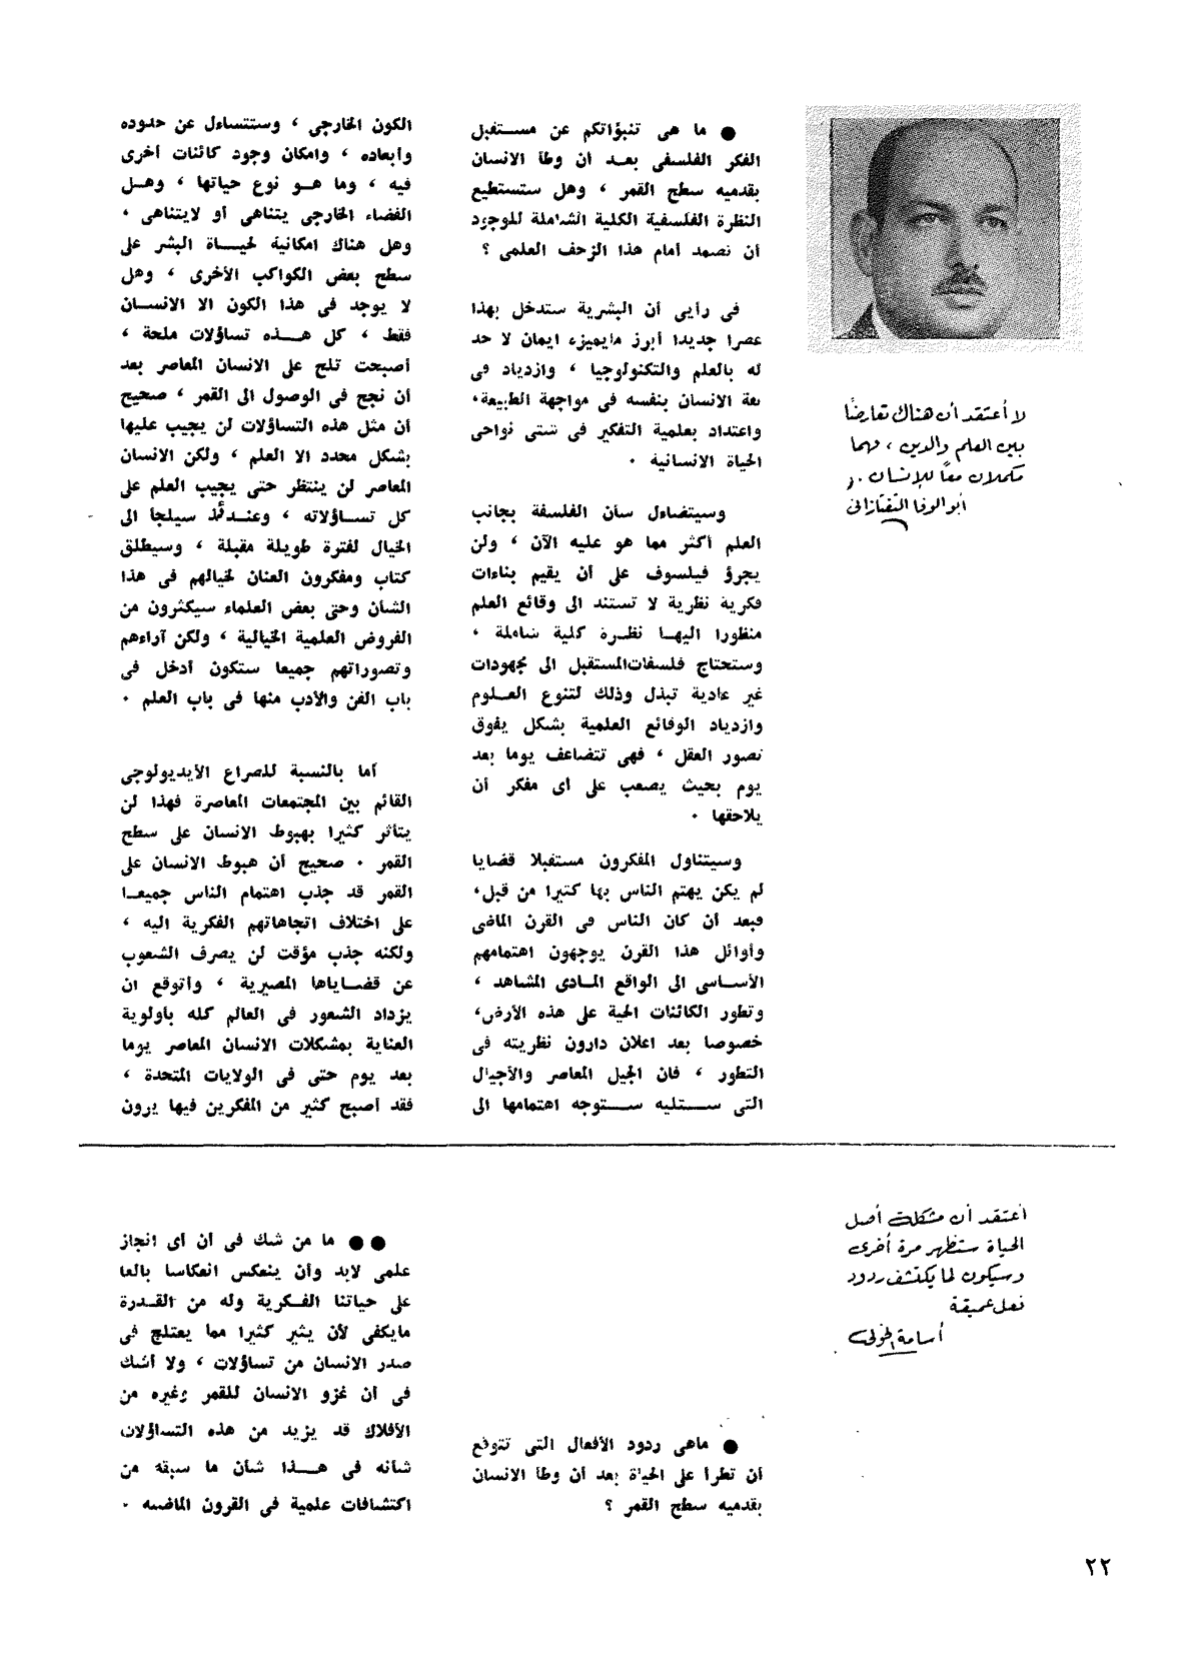 لا أعتقد أن هناك تعارضًا
بين العلم والدين ، فهما
مكملان معًا للإنسان .
أبو الوفا التفتازانى
● ما هى تنبؤاتكم عن مستقبل
الفكر الفلسفى بعد أن وطأ الانسان
بقدميه سطح القمر ، وهل ستستطيع
النظرة الفلسفية الكلية الشاملة للوجود
أن تصمد أمام هذا الزحف العلمى ؟
فى رأيى أن البشرية ستدخل بهذا
عصرا جديدا أبرز مايميزه ايمان لا حد
له بالعلم والتكنولوجيا ، وازدياد فى
ثقة الانسان بنفسه فى مواجهة الطبيعة،
واعتداد بعلمية التفكير فى شتى نواحى
الحياة الانسانية .
وسيتضاءل شأن الفلسفة بجانب
العلم أكثر مما هو عليه الآن ، ولن
يجرؤ فيلسوف على أن يقيم بناءات
فكرية نظرية لا تستند الى وقائع العلم
منظورا اليها نظرة كلية شاملة ،
وستحتاج فلسفات المستقبل الى مجهودات
غير عادية تبذل وذلك لتنوع العلوم
وازدياد الوقائع العلمية بشكل يفوق
تصور العقل ، فهى تتضاعف يوما بعد
يوم بحيث يصعب على أى مفكر أن
يلاحقها .
وسيتناول المفكرون مستقبلا قضايا
لم يكن يهتم الناس بها كثيرا من قبل،
فبعد أن كان الناس فى القرن الماضى
وأوائل هذا القرن يوجهون اهتمامهم
الأساسى الى الواقع المادى المشاهد ،
وتطور الكائنات الحية على هذه الأرض،
خصوصا بعد اعلان دارون نظريته فى
التطور ، فان الجيل المعاصر والأجيال
التى ستليه ستوجه اهتمامها الى
الكون الخارجى ، وستتساءل عن حدوده
وأبعاده ، وامكان وجود كائنات أخرى
فيه ، وما هو نوع حياتها ، وهل
الفضاء الخارجى يتناهى أو لايتناهى ،
وهل هناك امكانية لحياة البشر على
سطح بعض الكواكب الأخرى ، وهل
لا يوجد فى هذا الكون الا الانسان
فقط ، كل هذه تساؤلات ملحة ،
أصبحت تلح على الانسان المعاصر بعد
أن نجح فى الوصول الى القمر ، صحيح
أن مثل هذه التساؤلات لن يجيب عليها
بشكل محدد الا العلم ، ولكن الانسان
المعاصر لن ينتظر حتى يجيب العلم على
كل تساؤلاته ، وعندئذ سيلجأ الى
الخيال لفترة طويلة مقبلة ، وسيطلق
كتاب ومفكرون العنان لخيالهم فى هذا
الشأن وحتى بعض العلماء سيكثرون من
الفروض العلمية الخيالية ، ولكن آراءهم
وتصوراتهم جميعا ستكون أدخل فى
باب الفن والأدب منها فى باب العلم .
أما بالنسبة للصراع الأيديولوجى
القائم بين المجتمعات المعاصرة فهذا لن
يتأثر كثيرا بهبوط الانسان على سطح
القمر . صحيح أن هبوط الانسان على
القمر قد جذب اهتمام الناس جميعا
على اختلاف اتجاهاتهم الفكرية اليه ،
ولكنه جذب مؤقت لن يصرف الشعوب
عن قضاياها المصيرية ، وأتوقع أن
يزداد الشعور فى العالم كله بأولوية
العناية بمشكلات الانسان المعاصر يوما
بعد يوم حتى فى الولايات المتحدة ،
فقد أصبح كثير من المفكرين فيها يرون
أعتقد أن مشكلة أصل
الحياة ستظهر مرة أخرى
وسيكون لما يكتشف ردود
فعل عميقة
أسامة الخولى
● ماهى ردود الأفعال التى تتوقع
أن تطرأ على الحياة بعد أن وطأ الانسان
بقدميه سطح القمر ؟
●● ما من شك فى أن أى انجاز
علمى لابد وأن ينعكس انعكاسا بالغا
على حياتنا الفكرية وله من القدرة
مايكفى لأن يثير كثيرا مما يعتلج فى
صدر الانسان من تساؤلات ، ولا أشك
فى أن غزو الانسان للقمر وغيره من
الأفلاك قد يزيد من هذه التساؤلات
شأنه فى هذا شأن ما سبقه من
اكتشافات علمية فى القرون الماضية .
٢٢